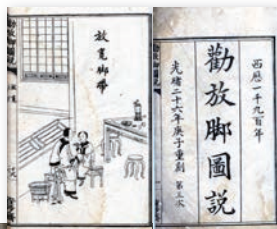 放寬脚帶
西曆一千九百年
勸放脚圖說
光緒二十六年庚子重刻 第三次